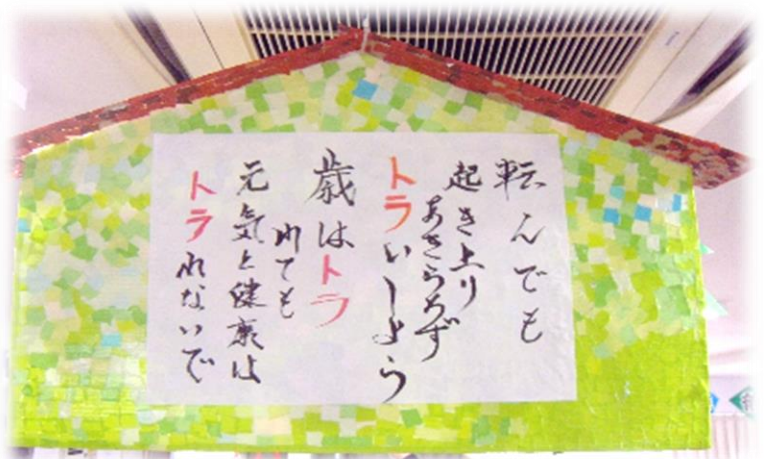 転んでも
起き上り
あきらめず
トラいしよう
歳はトラ
れても
元気と健康は
トラれないで